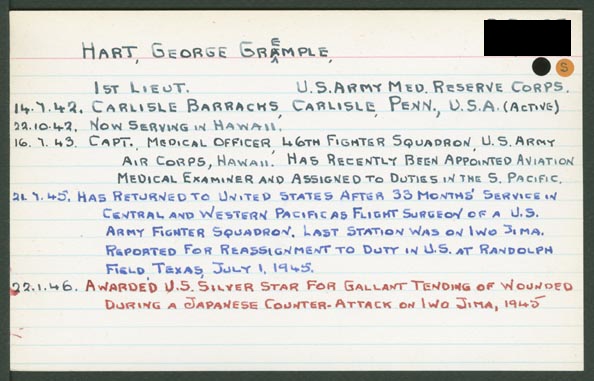 HART, GEORGE GRAEMPLE,
S
1ST LIEUT. U.S. ARMY MED. RESERVE CORPS.
14.7.42. CARLISLE BARRACKS, CARLISLE, PENN., U.S.A. (ACTIVE)
22.10.42. NOW SERVING IN HAWAII.
16.7.43. CAPT., MEDICAL OFFICER, 46TH FIGHTER SQUADRON, U.S. ARMY
AIR CORPS, HAWAII. HAS RECENTLY BEEN APPOINTED AVIATION
MEDICAL EXAMINER AND ASSIGNED TO DUTIES IN THE S. PACIFIC.
21.7.45. HAS RETURNED TO UNITED STATES AFTER 33 MONTHS' SERVICE IN
CENTRAL AND WESTERN PACIFIC AS FLIGHT SURGEON OF A U.S.
ARMY FIGHTER SQUADRON. LAST STATION WAS ON IWO JIMA.
REPORTED FOR REASSIGNMENT TO DUTY IN U.S. AT RANDOLPH
FIELD, TEXAS, JULY 1, 1945.
22.1.46. AWARDED U.S. SILVER STAR FOR GALLANT TENDING OF WOUNDED
DURING A JAPANESE COUNTER-ATTACK ON IWO JIMA, 1945